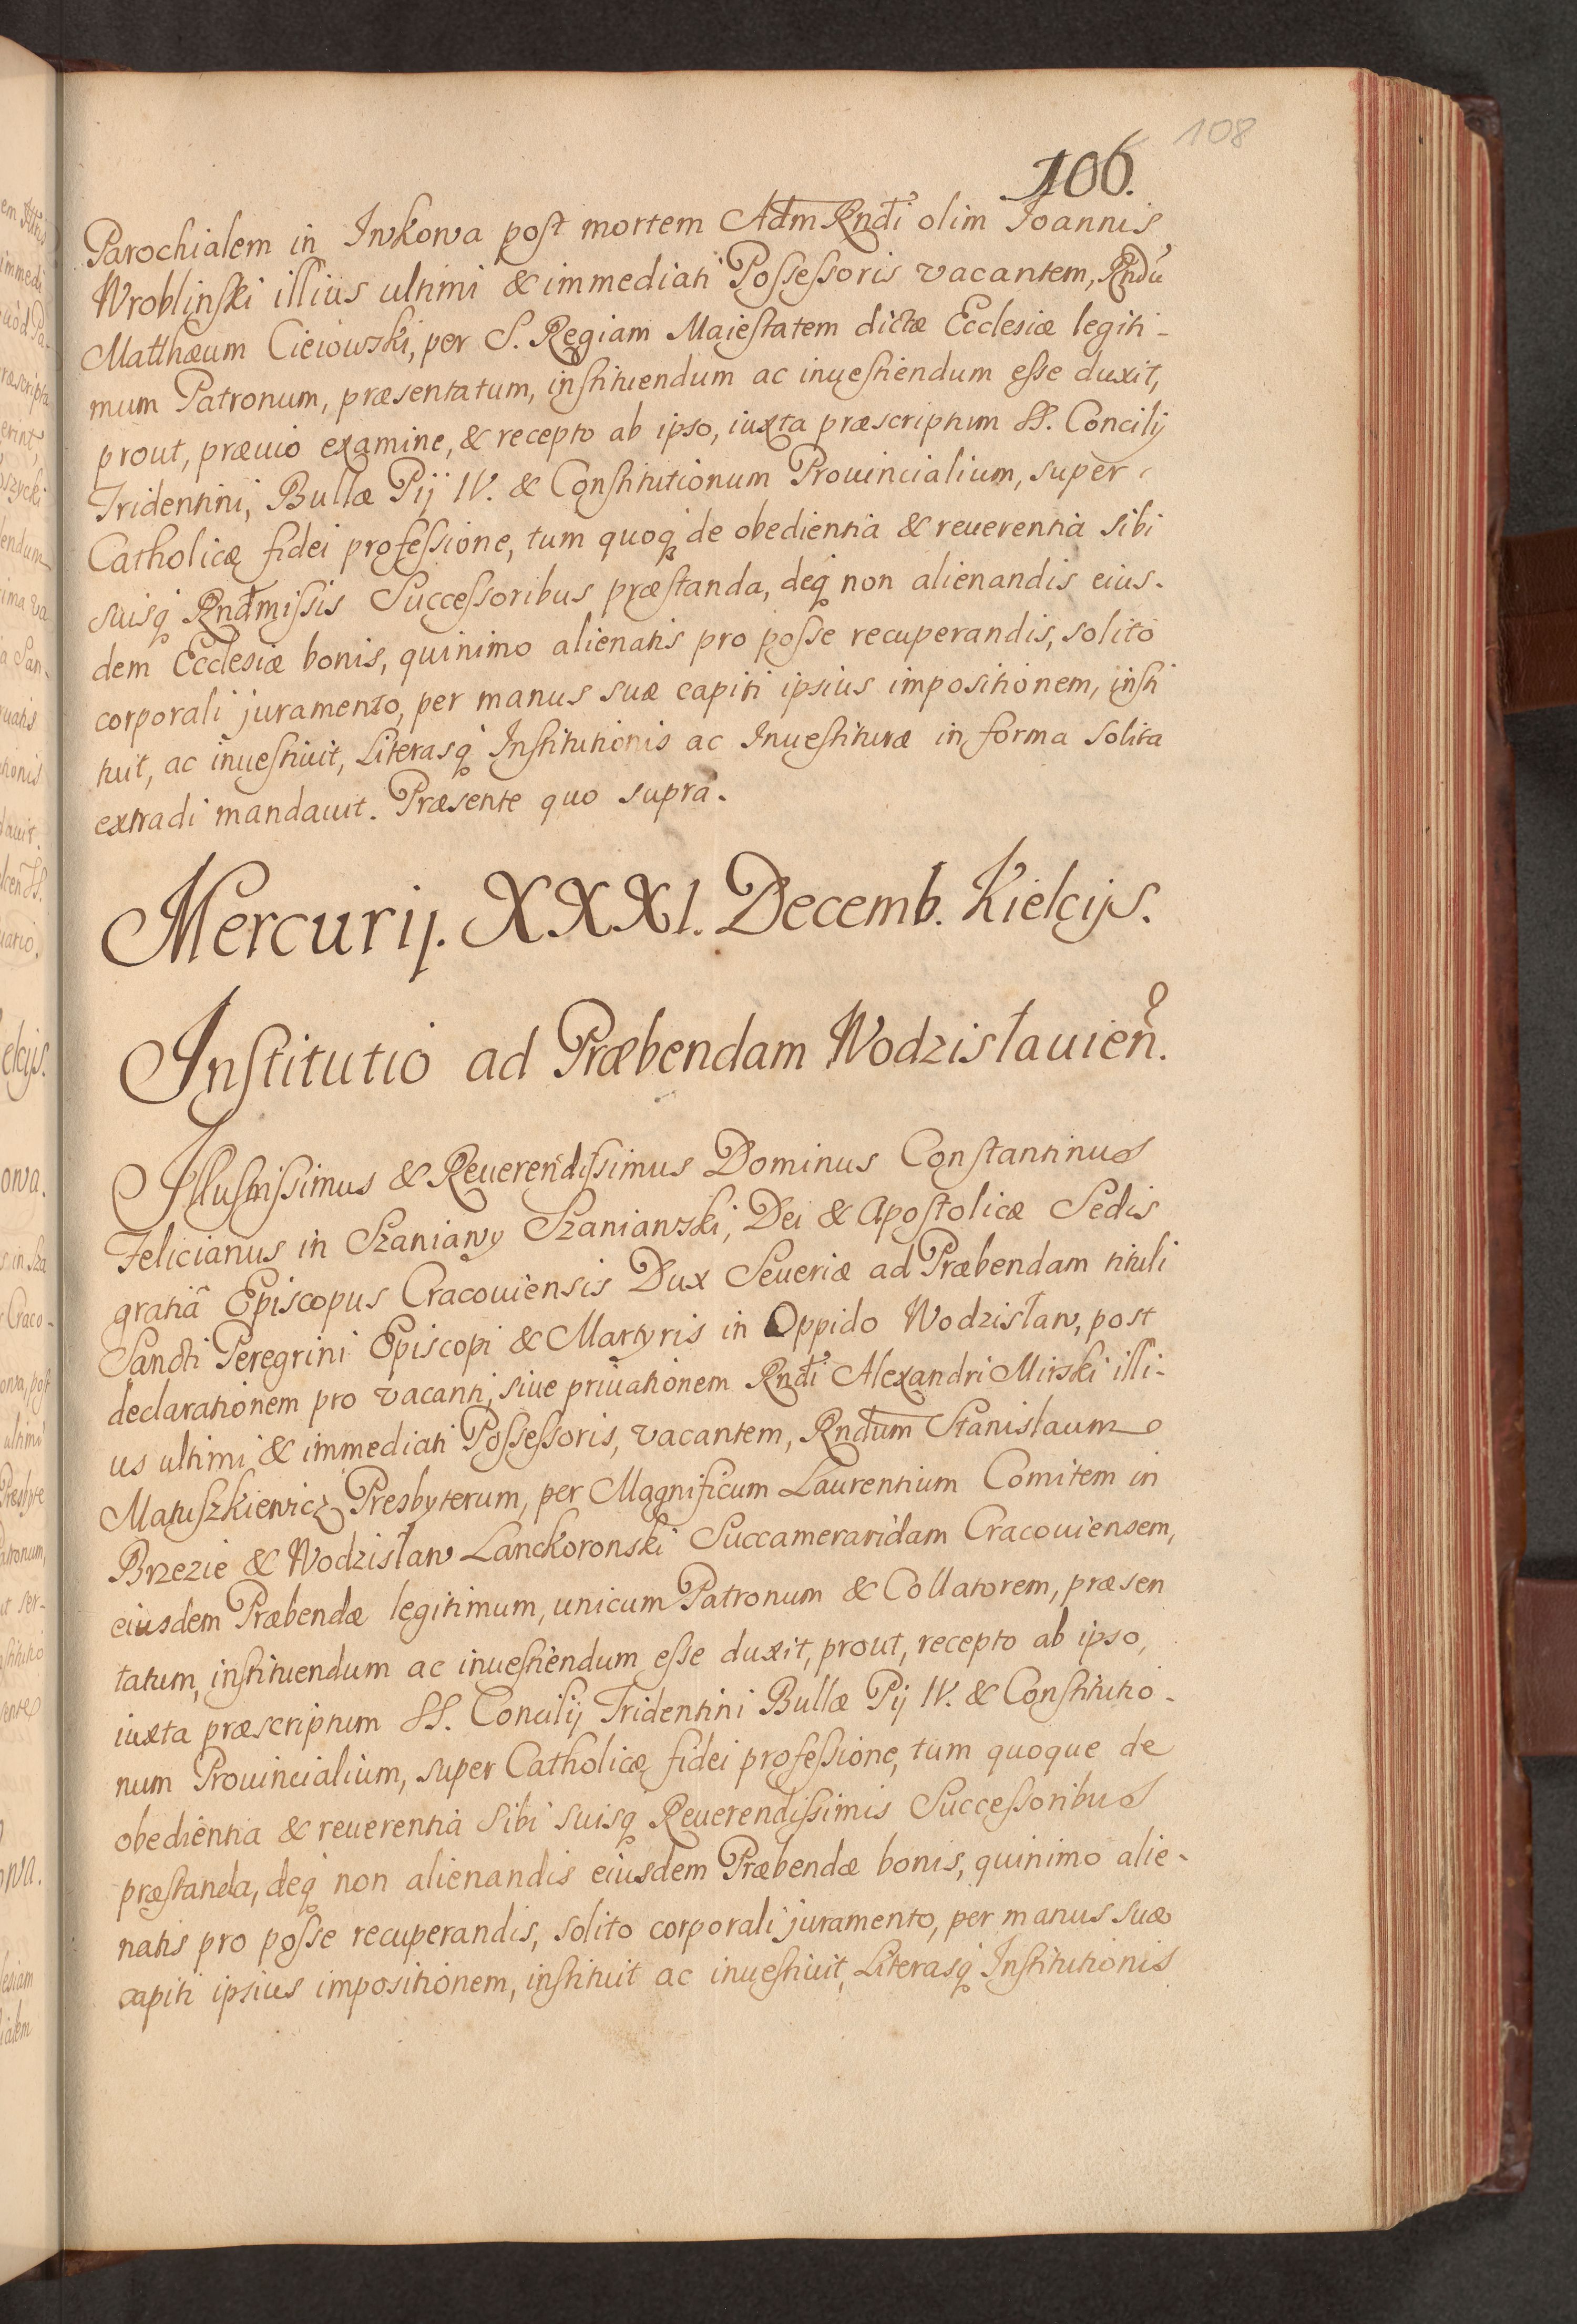 108
106.
Parochialem in Iwkowa post mortem Adm Rndi olim Ioannis
Wroblinski illius ultimi & immediati Possessoris vacantem, Rndu
Matthæum Cieiowski, per S. Regiam Maiestatem dictæ Ecclesiæ legiti-
mum Patronum, præsentatum, instituendum ac inuestiendum esse duxit,
prout, præuio examine, & recepto ab ipso, iuxta præscriptum SS. Concilij
Tridentini, Bullæ Pij IV. & Constitutionum Prouincialium, super
Catholicæ fidei professione, tum quoq de obedientia & reuerentia sibi
suisq Rndmissis Successoribus præstanda, deq non alienandis eius-
dem Ecclesiæ bonis, quinimo alienatis pro posse recuperandis, solito
corporali juramento, per manus suæ capiti ipsius impositionem, insti
tuit, ac inuestiuit, Literasq Institutionis ac Inuestituræ in forma solita
extradi mandauit. Præsente quo supra.
Mercurij. XXXI. Decemb. Kielcijs.
Institutio ad Præbendam Wodzisłauien.
Illustrissimus & Reuerendissimus Dominus Constantinus
Felicianus in Szaniawy Szaniawski, Dei & Apostolicæ Sedis
gratiâ Episcopus Cracouiensis Dux Seueriæ ad Præbendam tituli
Sancti Peregrini Episcopi & Martyris in Oppido Wodzisław, post
declarationem pro vacanti, siue priuationem Rndi Alexandri Mirski illi-
us ultimi & immediati Possessoris, vacantem, Rndum Stanislaum
Matuszkiewicz Presbyterum, per Magnificum Laurentium Comitem in
Brzezie & Wodzisław Lanckoronski Succameraridam Cracouiensem,
eiusdem Præbendæ legitimum, unicum Patronum & Collatorem, præsen
tatum, instituendum ac inuestiendum esse duxit, prout, recepto ab ipso,
iuxta præscriptum SS. Concilij Tridentini Bullæ Pij IV. & Constitutio-
num Prouincialium, super Catholicæ fidei professione, tum quoque de
obedientia & reuerentia sibi suisq Reuerendissimis Successoribus
præstanda, deq non alienandis eiusdem Præbendæ bonis, quinimo alie-
natis pro posse recuperandis, solito corporali juramento, per manus suæ
capiti ipsius impositionem, instituit ac inuestiuit, Literasq Institutionis